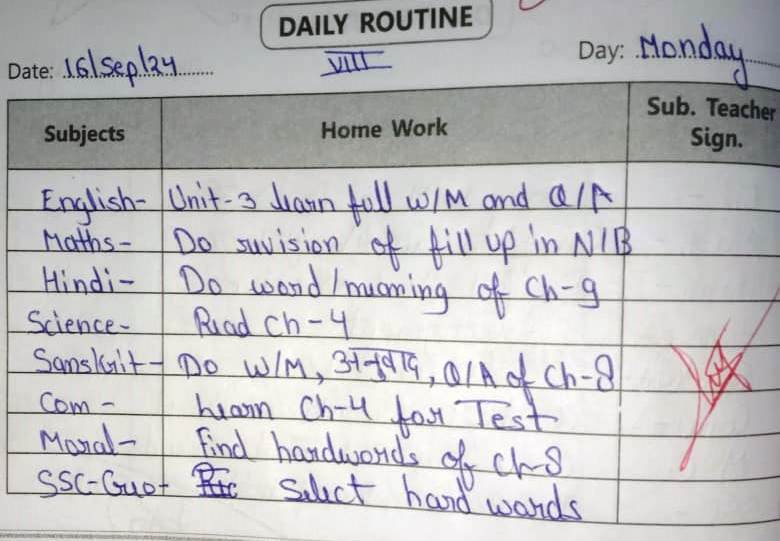 DAILY ROUTINE
Date: 16/Sep/24 VIII Day: Monday
Subjects Home Work Sub. Teacher Sign.
English- Unit-3 learn full W/M and Q/A
Maths- Do revision of fill up in N/B
Hindi- Do word/meaning of Ch-9
Science- Read Ch-4
Sanskrit- Do W/M, अनुवाद, Q/A of Ch-8
Com- Learn Ch-4 for Test
Moral- Find hardwords of Ch-8
SSC-Geo- Select hard words